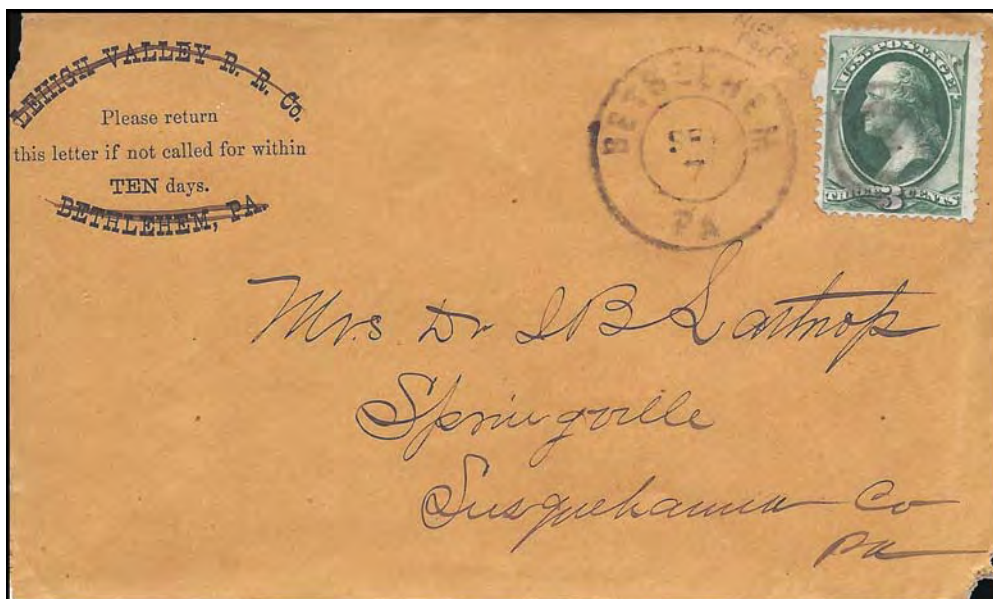 LEHIGH VALLEY R. R. Co.
Please return
this letter if not called for within
TEN days.
BETHLEHEM, PA.
BETHLEHEM
SEP
7
PA
U.S. POSTAGE
THREE 3 CENTS
Mrs Dr I B Lathrop
Springville
Susquehanna Co
Pa